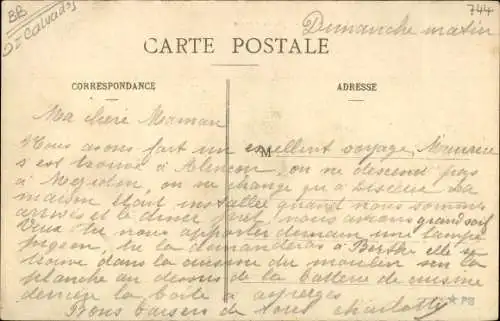 BB
Calvados
744
Dimanche matin
CARTE POSTALE
CORRESPONDANCE
ADRESSE
M
Ma chère Maman
Nous avons fait un excellent voyage, Maurice
s'est trouvé à Alençon, on ne descend pas
à Mezidon, on ne change qu'à Lisieux. La
maison était installée quand nous sommes
arrivés et le diner fait, nous avions grand soif
Veux tu nous apporter demain une lampe
pigeon, tu la demanderas à Berthe elle se
trouve dans la cuisine du moulin sur la
planche au dessus de la batterie de cuisine
derrière la boite à asperges
Bons baisers de tous Charlotte